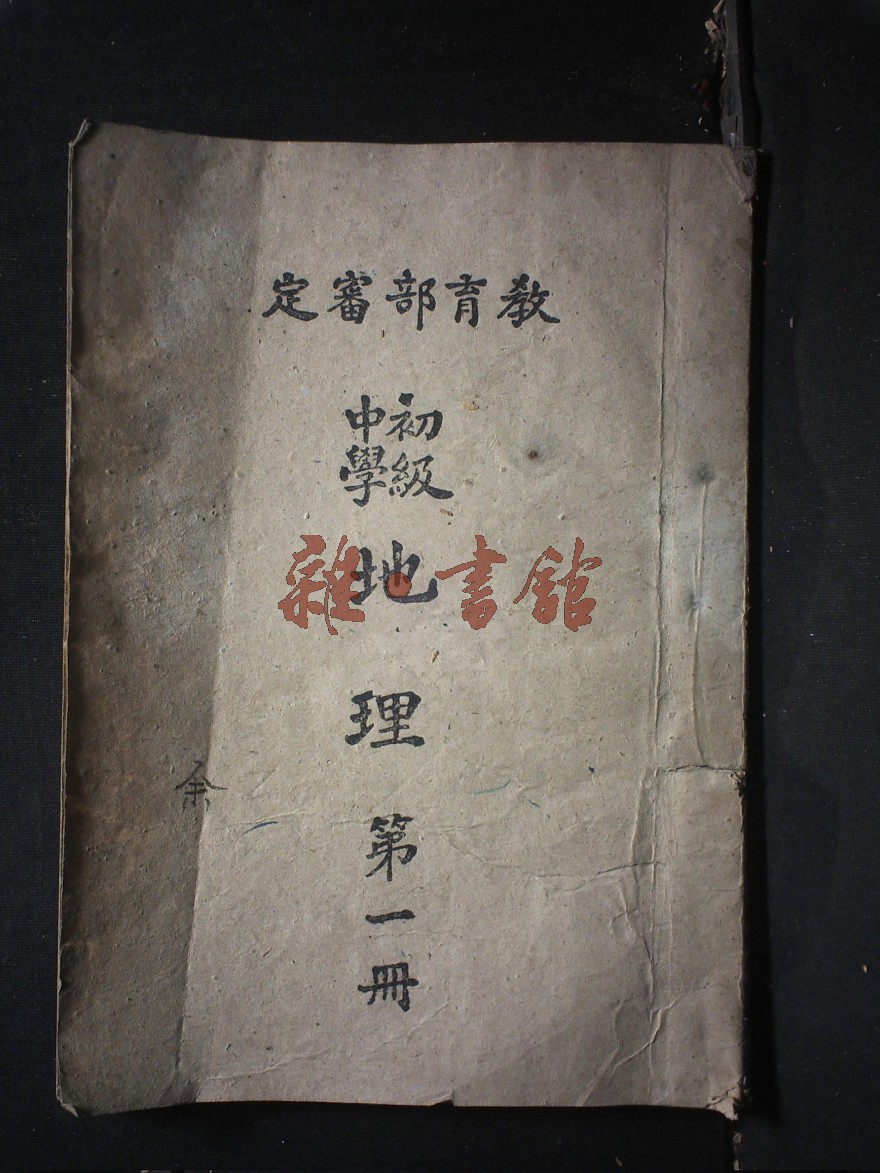 教育部審定
初級
中學
地理第一冊
余
雜·書館